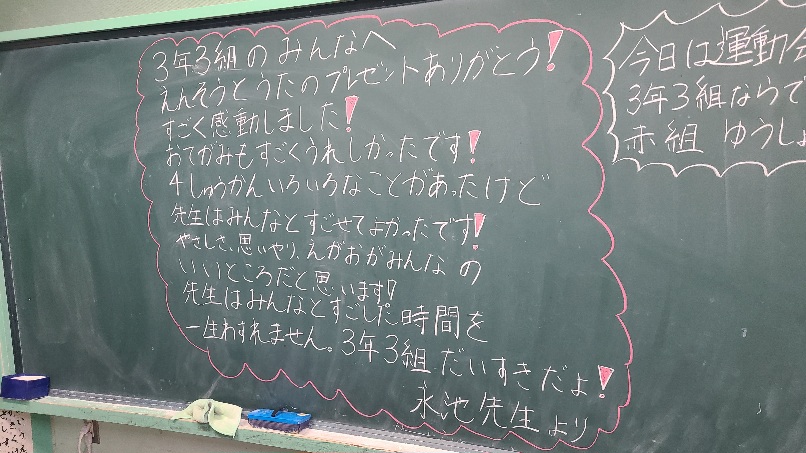 3年3組のみんなへ
えんそうとうたのプレゼントありがとう!
すごく感動しました!
おてがみもすごくうれしかったです!
4しゅうかんいろいろなことがあったけど
先生はみんなとすごせてよかったです!
やさしさ、思いやり、えがおがみんなの
いいところだと思います!
先生はみんなとすごした時間を
一生わすれません。3年3組だいすきだよ!
永池先生より
今日は運動会
3年3組ならで
赤組 ゆうしょ